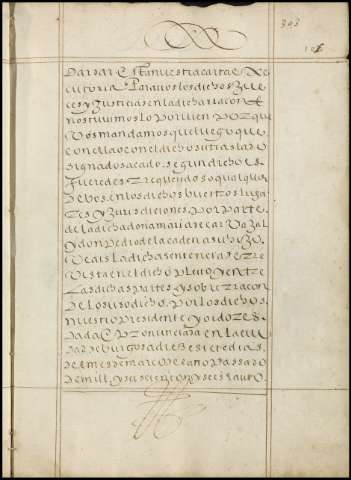 303
Dar dar Esta nuestra carta e Re
cutoria Para vos los dichos Jue
ces y Justicias en la dicha rracon E
nos tuuimos lo Por bien Porque
Vos mandamos que luego que
con ella o con el dicho su traslado
signado sacado segun dicho es
fueredes rrequeridos o qualquier
de vos en los dichos vuestros luga
res y Jurisdiciones Por Parte
de la dicha doña maria de caruaxal
y don Pedro de la cadena su hijo
Veais la dicha sentencia de rre
vista en el dicho Pleito y entre
Las dichas Partes y sobre rracon
de lo suso dicho Por los dichos
nuestro Presidente y oidores
dada E Pronunciada en la ciu
dad de burgos a diez e siete dias
del mes de março del año Passado
de mill y seiscientos y seis